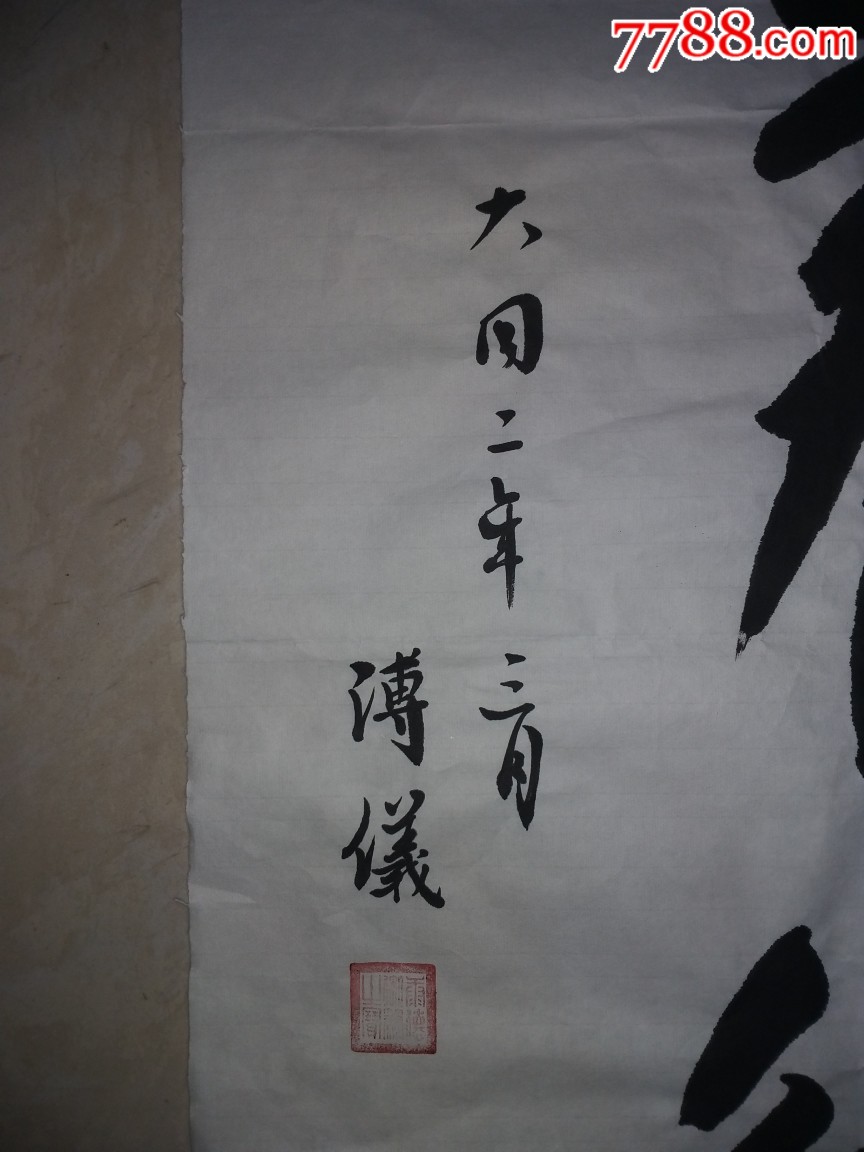 7788.com
大同二年三月
溥儀